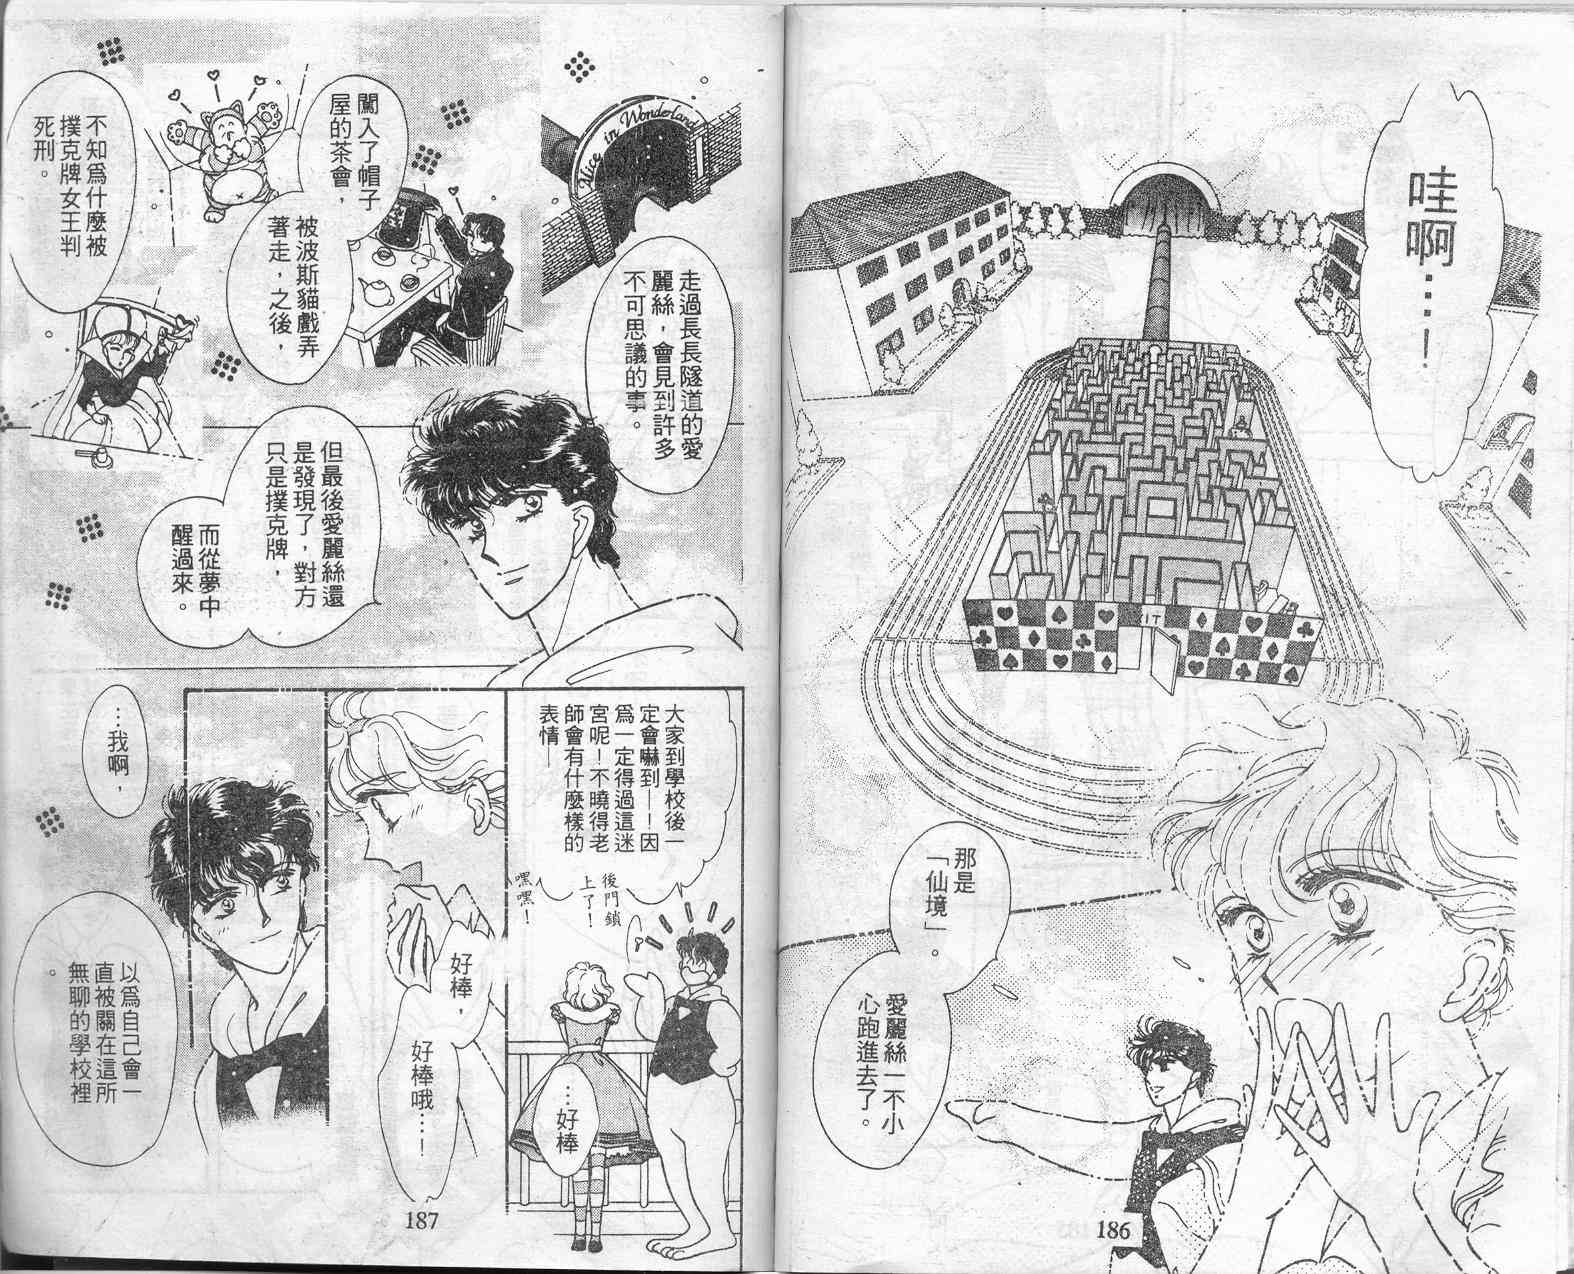 哇啊……！
那是
「仙境」。
愛麗絲一不小
心跑進去了。
EXIT
186
Alice in Wonderland
走過長長隧道的愛
麗絲，會見到許多
不可思議的事。
闖入了帽子
屋的茶會，
被波斯貓戲弄
著走，之後，
不知為什麼被
撲克牌女王判
死刑。
但最後愛麗絲還
是發現了，對方
只是撲克牌，
而從夢中
醒過來。
大家到學校後一
定會嚇到——！因
為一定得過這迷
宮呢！不曉得老
師會有什麼樣的
表情—
後門鎖
上了！
嘿嘿！
…好棒
好棒，
好棒哦…！
…我啊，
以為自己會一
直被關在這所
無聊的學校裡
。
187